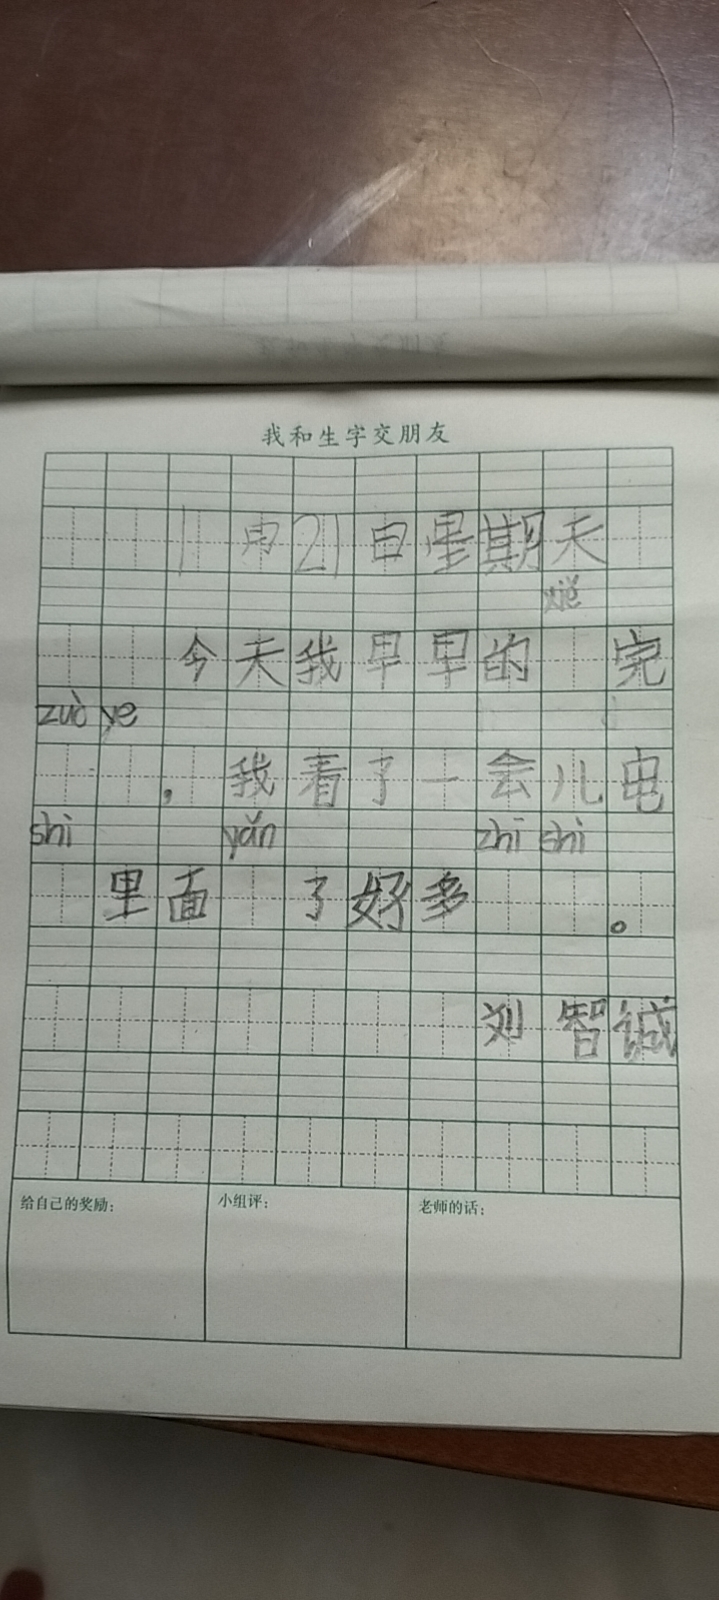 我和生字交朋友
11月21日星期天
xiě
今天我早早的 完
zuò ye
，我看了一会儿电
shi yǎn zhī shi
里面 了好多 。
刘智诚
给自己的奖励： 小组评： 老师的话：